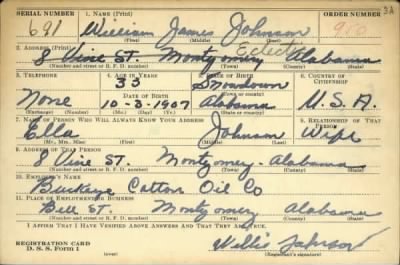 SERIAL NUMBER 1. NAME (Print) ORDER NUMBER
691 William James Johnson
(First) (Middle) (Last)
2. ADDRESS (Print) Eclectic
8 Vine St. Montgomery Alabama
(Number and street or R. F. D. number) (Town) (County) (State)
3. TELEPHONE 4. AGE IN YEARS 5. PLACE OF BIRTH 6. COUNTRY OF CITIZENSHIP
33 Snowdoun
DATE OF BIRTH (Town or county)
None 10-3-1907 Alabama U.S.A.
(Exchange) (Number) (Mo.) (Day) (Yr.) (State or country)
7. NAME OF PERSON WHO WILL ALWAYS KNOW YOUR ADDRESS 8. RELATIONSHIP OF THAT PERSON
Ella Johnson Wife
(Mr., Mrs., Miss) (First) (Middle) (Last)
9. ADDRESS OF THAT PERSON
8 Vine St. Montgomery - Alabama
(Number and street or R. F. D. number) (Town) (County) (State)
10. EMPLOYER'S NAME
Buckeye Cotton Oil Co
11. PLACE OF EMPLOYMENT OR BUSINESS
Bell St. Montgomery Alabama
(Number and street or R. F. D. number) (Town) (County) (State)
I AFFIRM THAT I HAVE VERIFIED ABOVE ANSWERS AND THAT THEY ARE TRUE.
REGISTRATION CARD
D. S. S. Form 1 (over) Willie Johnson
(Registrant's signature)